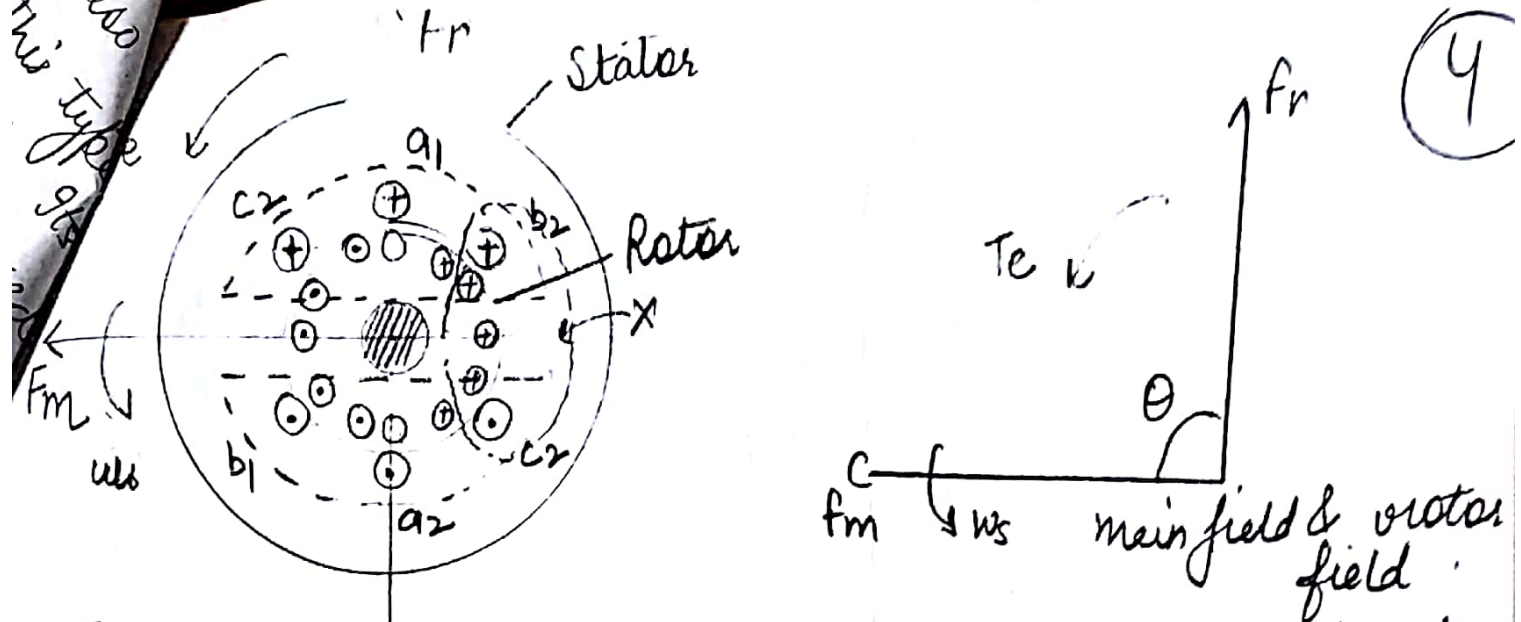 so
his
type
Fr
Stator
a1
c2
b2
Rotor
X
Fm
ws
b1
c2
a2
4
Fr
Te
θ
fm
ws
main field & rotor
field